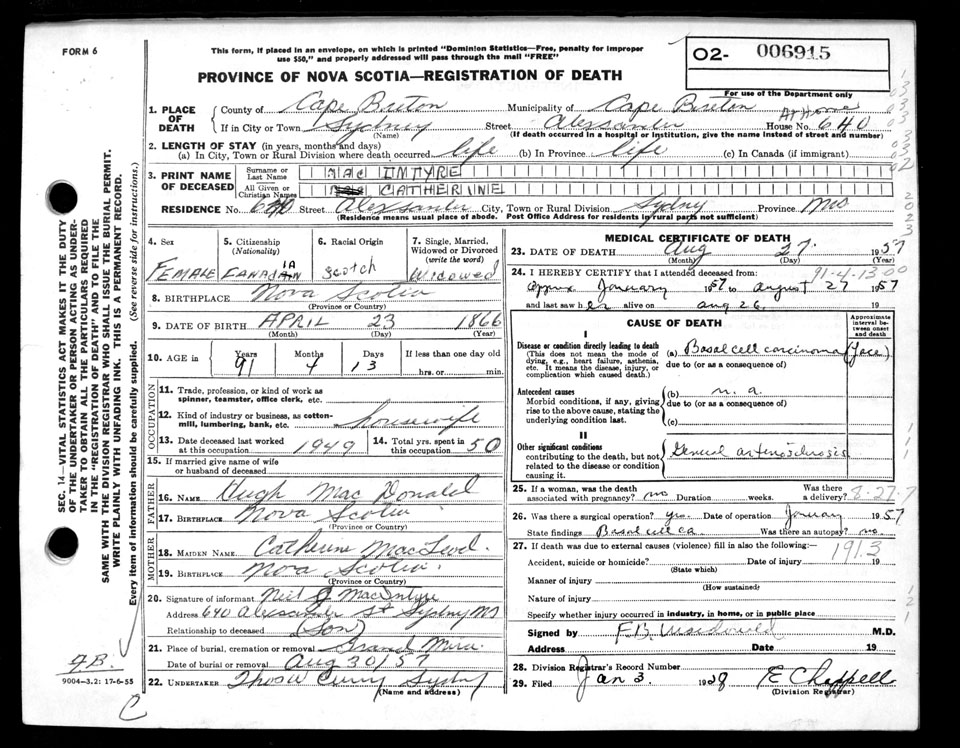 FORM 6
This form, if placed in an envelope, on which is printed "Dominion Statistics—Free, penalty for improper
use $50," and properly addressed will pass through the mail "FREE"
O2- 006915
For use of the Department only
PROVINCE OF NOVA SCOTIA—REGISTRATION OF DEATH
1. PLACE OF DEATH
County of Cape Breton Municipality of Cape Breton
At Home
If in City or Town Sydney Street Alexander House No. 640
(Name) (If death occurred in a hospital or institution, give the name instead of street and number)
2. LENGTH OF STAY (in years, months and days)
(a) In City, Town or Rural Division where death occurred life (b) In Province life (c) In Canada (if immigrant)
3. PRINT NAME OF DECEASED
Surname or Last Name MAC INTYRE
All Given or Christian Names CATHERINE
RESIDENCE No. 640 Street Alexander City, Town or Rural Division Sydney Province NS
(Residence means usual place of abode. Post Office Address for residents in rural parts not sufficient)
4. Sex FEMALE
5. Citizenship (Nationality) CANADIAN
6. Racial Origin Scotch
7. Single, Married, Widowed or Divorced (write the word) Widowed
8. BIRTHPLACE Nova Scotia
(Province or Country)
9. DATE OF BIRTH APRIL 23 1866
(Month) (Day) (Year)
10. AGE in Years 91 Months 4 Days 13 If less than one day old
hrs. or min.
OCCUPATION
11. Trade, profession or kind of work as spinner, teamster, office clerk, etc.
12. Kind of industry or business, as cotton-mill, lumbering, bank, etc. Housewife
13. Date deceased last worked at this occupation 1949
14. Total yrs. spent in this occupation 50
15. If married give name of wife or husband of deceased
FATHER
16. NAME Hugh Mac Donald
17. BIRTHPLACE Nova Scotia
(Province or Country)
MOTHER
18. MAIDEN NAME Catherine MacLeod.
19. BIRTHPLACE Nova Scotia.
(Province or Country)
20. Signature of informant Neil J MacIntyre
Address 640 Alexander St Sydney NS
Relationship to deceased (Son)
21. Place of burial, cremation or removal Grand Mira
Date of burial or removal Aug 30/57
22. UNDERTAKER Thos W Curry Sydney
(Name and address)
MEDICAL CERTIFICATE OF DEATH
23. DATE OF DEATH Aug 27. 1957
(Month) (Day) (Year)
91-4-13 00
24. I HEREBY CERTIFY that I attended deceased from:
Approx January 1957 to August 27 1957
and last saw her alive on Aug 26. 19
CAUSE OF DEATH
Approximate interval between onset and death
I
Disease or condition directly leading to death
(This does not mean the mode of dying, e.g., heart failure, asthenia, etc. It means the disease, injury, or complication which caused death.)
(a) Basal cell carcinoma (face)
due to (or as a consequence of)
Antecedent causes
Morbid conditions, if any, giving rise to the above cause, stating the underlying condition last.
(b) n.a.
due to (or as a consequence of)
(c)
II
Other significant conditions
contributing to the death, but not related to the disease or condition causing it.
General arteriosclerosis
25. If a woman, was the death associated with pregnancy? no Duration weeks. Was there a delivery?
8-27-7
26. Was there a surgical operation? yes. Date of operation January 1957
State findings Basal cell ca Was there an autopsy? no
27. If death was due to external causes (violence) fill in also the following:—
1913
Accident, suicide or homicide? Date of injury 19
(State which)
Manner of injury
(How sustained)
Nature of injury
Specify whether injury occurred in industry, in home, or in public place
Signed by M.D.
Address Date 19
28. Division Registrar's Record Number
29. Filed Jan 3. 1958 E Chappell
(Division Registrar)
SEC. 14—VITAL STATISTICS ACT MAKES IT THE DUTY
OF THE UNDERTAKER OR PERSON ACTING AS UNDER-
TAKER TO OBTAIN ALL THE PARTICULARS REQUIRED
IN THE "REGISTRATION OF DEATH" AND TO FILE THE
SAME WITH THE DIVISION REGISTRAR WHO SHALL ISSUE THE BURIAL PERMIT.
WRITE PLAINLY WITH UNFADING INK. THIS IS A PERMANENT RECORD.
Every item of information should be carefully supplied. (See reverse side for instructions.)
9004-3.2: 17-6-55